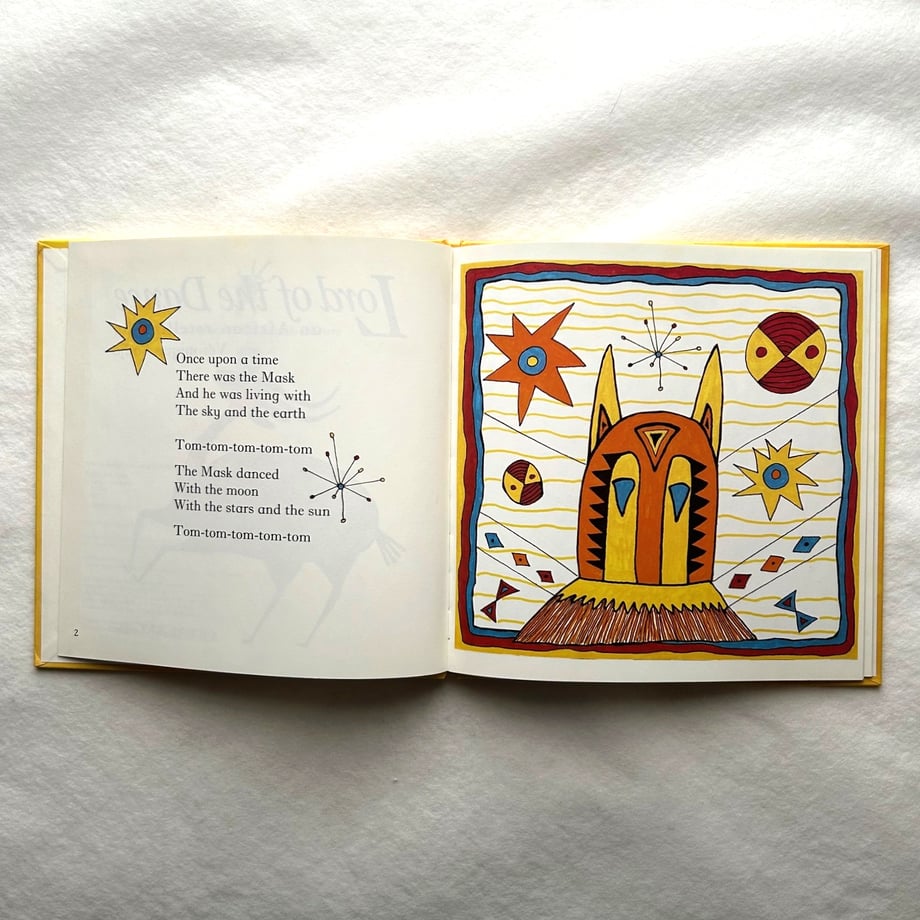 Lord of the Dance
Once upon a time
There was the Mask
And he was living with
The sky and the earth
Tom-tom-tom-tom-tom
The Mask danced
With the moon
With the stars and the sun
Tom-tom-tom-tom-tom
2